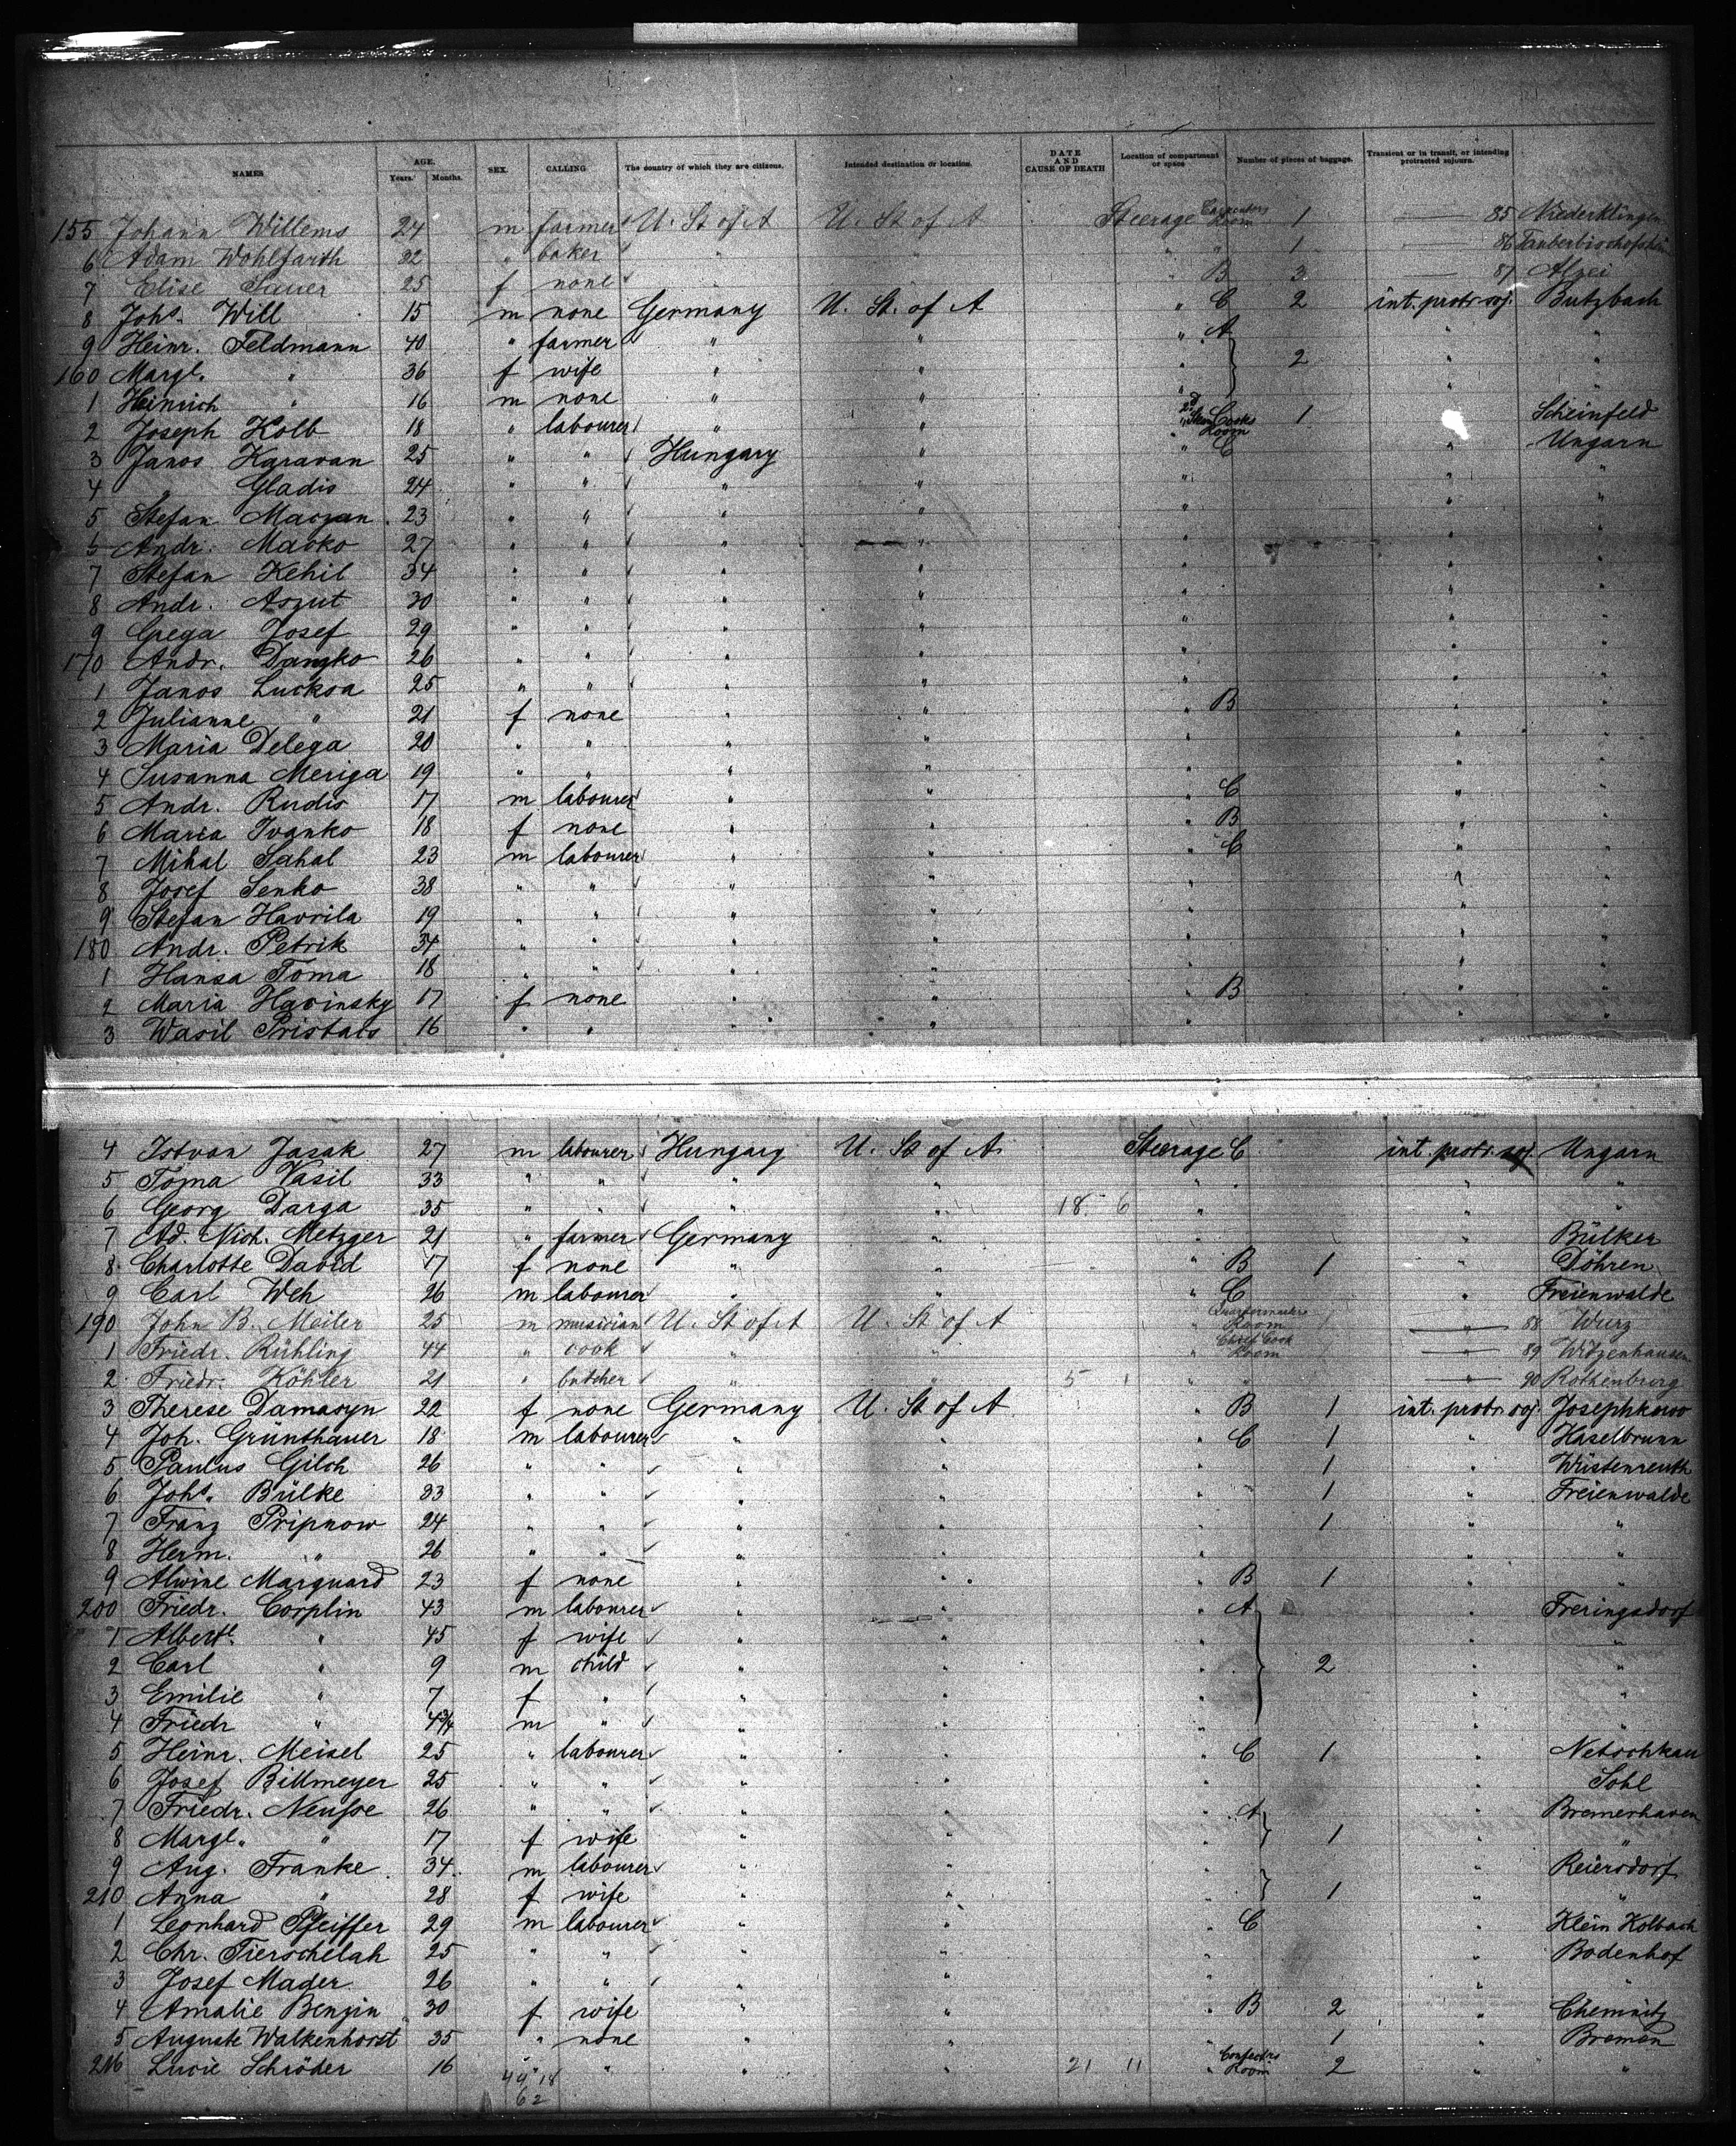 NAMES AGE. Years. Months. SEX. CALLING The country of which they are citizens. Intended destination or location. DATE AND CAUSE OF DEATH Location of compartment or space Number of pieces of baggage. Transient or in transit, or intending protracted sojourn.
155 Johann Willems 24 m farmer U. St of A U. St of A Steerage Carpenters Room 1 — 85 Niederklingen
6 Adam Wohlfarth 22 " baker " " " " 1 — 86 Tauberbischofsheim
7 Elise Sauer 25 f none " B 3 — 87 Alzei
8 Johs. Will 15 m none Germany U. St. of A " C 2 int. protr. soj. Butzbach
9 Heinr. Feldmann 40 " farmer " " " A " "
160 Margt. " 36 f wife " " " 2 " "
1 Heinrich " 16 m none " " " " "
2 Joseph Kolb 18 " labourer " " " Cooks Room 1 Scheinfeld
3 Janos Karavan 25 " " Hungary " " C " Ungarn
4 " Gladis 24 " " " " " " "
5 Stefan 23 " " " " " " "
6 Andr. Macko 27 " " " " " " "
7 Stefan Kehil 34 " " " " " " "
8 Andr. Aszut 30 " " " " " " "
9 Grega Josef 29 " " " " " " "
170 Andr. Danzko 26 " " " " " " "
1 Janos Lucksa 25 " " " " " " "
2 Julianne " 21 f none " " " B " "
3 Maria Delega 20 " " " " " " "
4 Susanna Meriga 19 " " " " " " "
5 Andr. Rudis 17 m labourer " " " C " "
6 Maria Ivanko 18 f none " " " B " "
7 Mihal Sahal 23 m labourer " " " C " "
8 Josef Senko 38 " " " " " " "
9 Stefan Havrila 19 " " " " " " "
180 Andr. Petrik 34 " " " " " " "
1 Hansa Toma 18 " " " " " " "
2 Maria Havinsky 17 f none " " " B " "
3 Wasil Pristats 16 " " " " " "
4 Istvan Jasak 27 m labourer Hungary U. St of A. Steerage C int. protr. soj. Ungarn
5 Toma Vasil 33 " " " " " " " "
6 Georg Darga 35 " " " " 18 6 " " "
7 Ad. Nich. Metzger 21 " farmer Germany " " " Bülker
8 Charlotte David 17 f none " " " B 1 " Döhren
9 Carl Weh 26 m labourer " " " C " Freienwalde
190 John B. Meiler 25 m musician U. St of A U. St of A " Quartermasters Room — " 88 Wurz
1 Friedr. Rühling 44 " cook " " " Chief Cook Room — " 89 Witzenhausen
2 Friedr. Köhler 21 " butcher " " 5 1 " " — " 90 Rothenburg
3 Therese Damasyn 22 f none Germany U. St of A " B 1 int. protr. soj. Josephkowo
4 Joh. Grünthauer 18 m labourer " " " C 1 " Haselbrunn
5 Paulus Gilch 26 " " " " " 1 " Wüstenreuth
6 Johs. Bülke 33 " " " " " 1 " Freienwalde
7 Franz Pripnow 24 " " " " " 1 " "
8 Herm. " 26 " " " " " " "
9 Alwine Marquard 23 f none " " " B 1 " "
200 Friedr. Corplin 43 m labourer " " " A " Freringsdorf
1 Albert. " 45 f wife " " " " "
2 Carl " 9 m child " " " 2 " "
3 Emilie " 7 f " " " " " "
4 Friedr " 4¾ m " " " " " "
5 Heinr. Meisel 25 " labourer " " " C 1 " Netschkau
6 Josef Billmeyer 25 " " " " " " Sohl
7 Friedr. Neusse 26 " " " " " A " Bremerhaven
8 Margt. " 17 f wife " " " 1 " "
9 Aug. Franke 34 m labourer " " " " Reiersdorf
210 Anna " 28 f wife " " " 1 " "
1 Leonhard Pfeiffer 29 m labourer " " " C " Klein Kolbach
2 Chr. Tierschelah 25 " " " " " " Bodenhof
3 Josef Mader 26 " " " " " " "
4 Amalie Benzin 30 f wife " " " B 2 " Chemnitz
5 Auguste Walkenhorst 35 " none " " " " 1 " Bremen
216 Lucie Schröder 16 " " " " 21 11 " Confectrs Room 2 " "
44 18
62